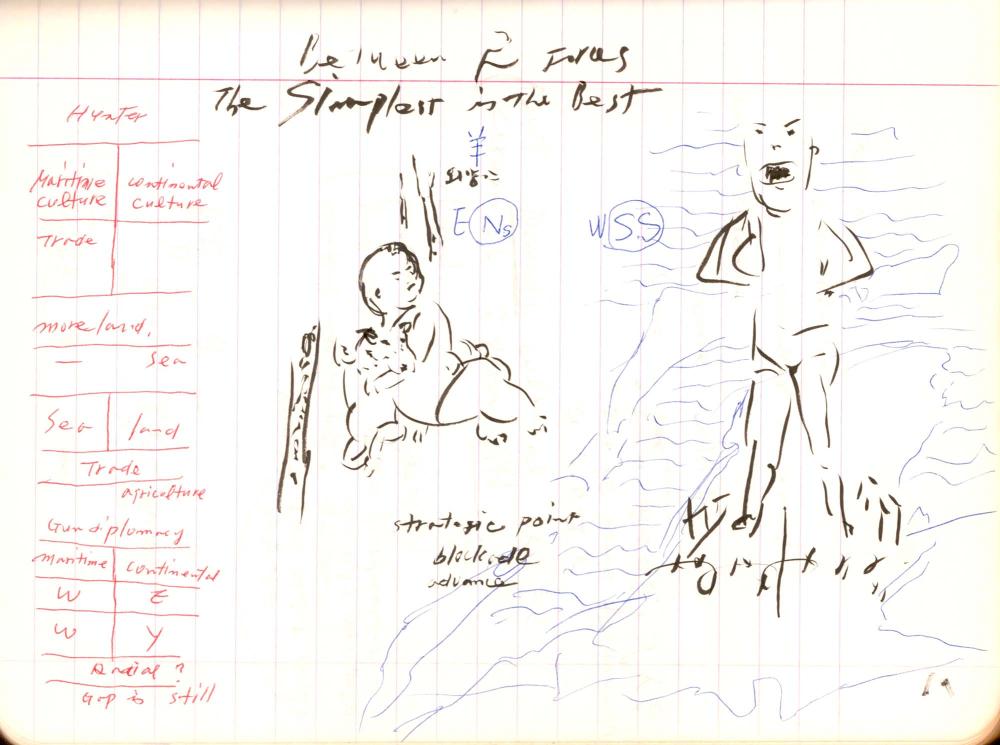 Between 2 Forces
The Simplest is the Best
Hunter
Maritime culture
continental culture
Trade
more land.
— Sea
Sea land
Trade
agriculture
Gun diplomacy
maritime continental
W E
W Y
Radial ?
Gap is still
羊
E Ns
W S.S
strategic point
blockade
advance